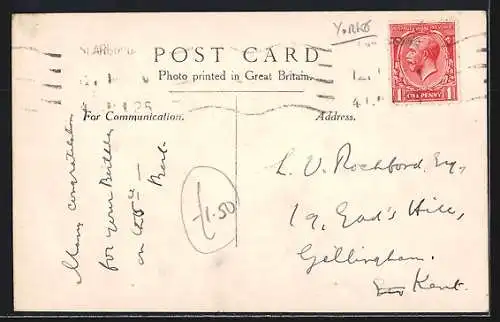 YORKS
POST CARD
Photo printed in Great Britain.
ONE PENNY
For Communication.
Address.
Many congratulations
for your
on
£1.50
L. V. Rochford, Esq.,
19, Gad's Hill,
Gillingham.
Kent.